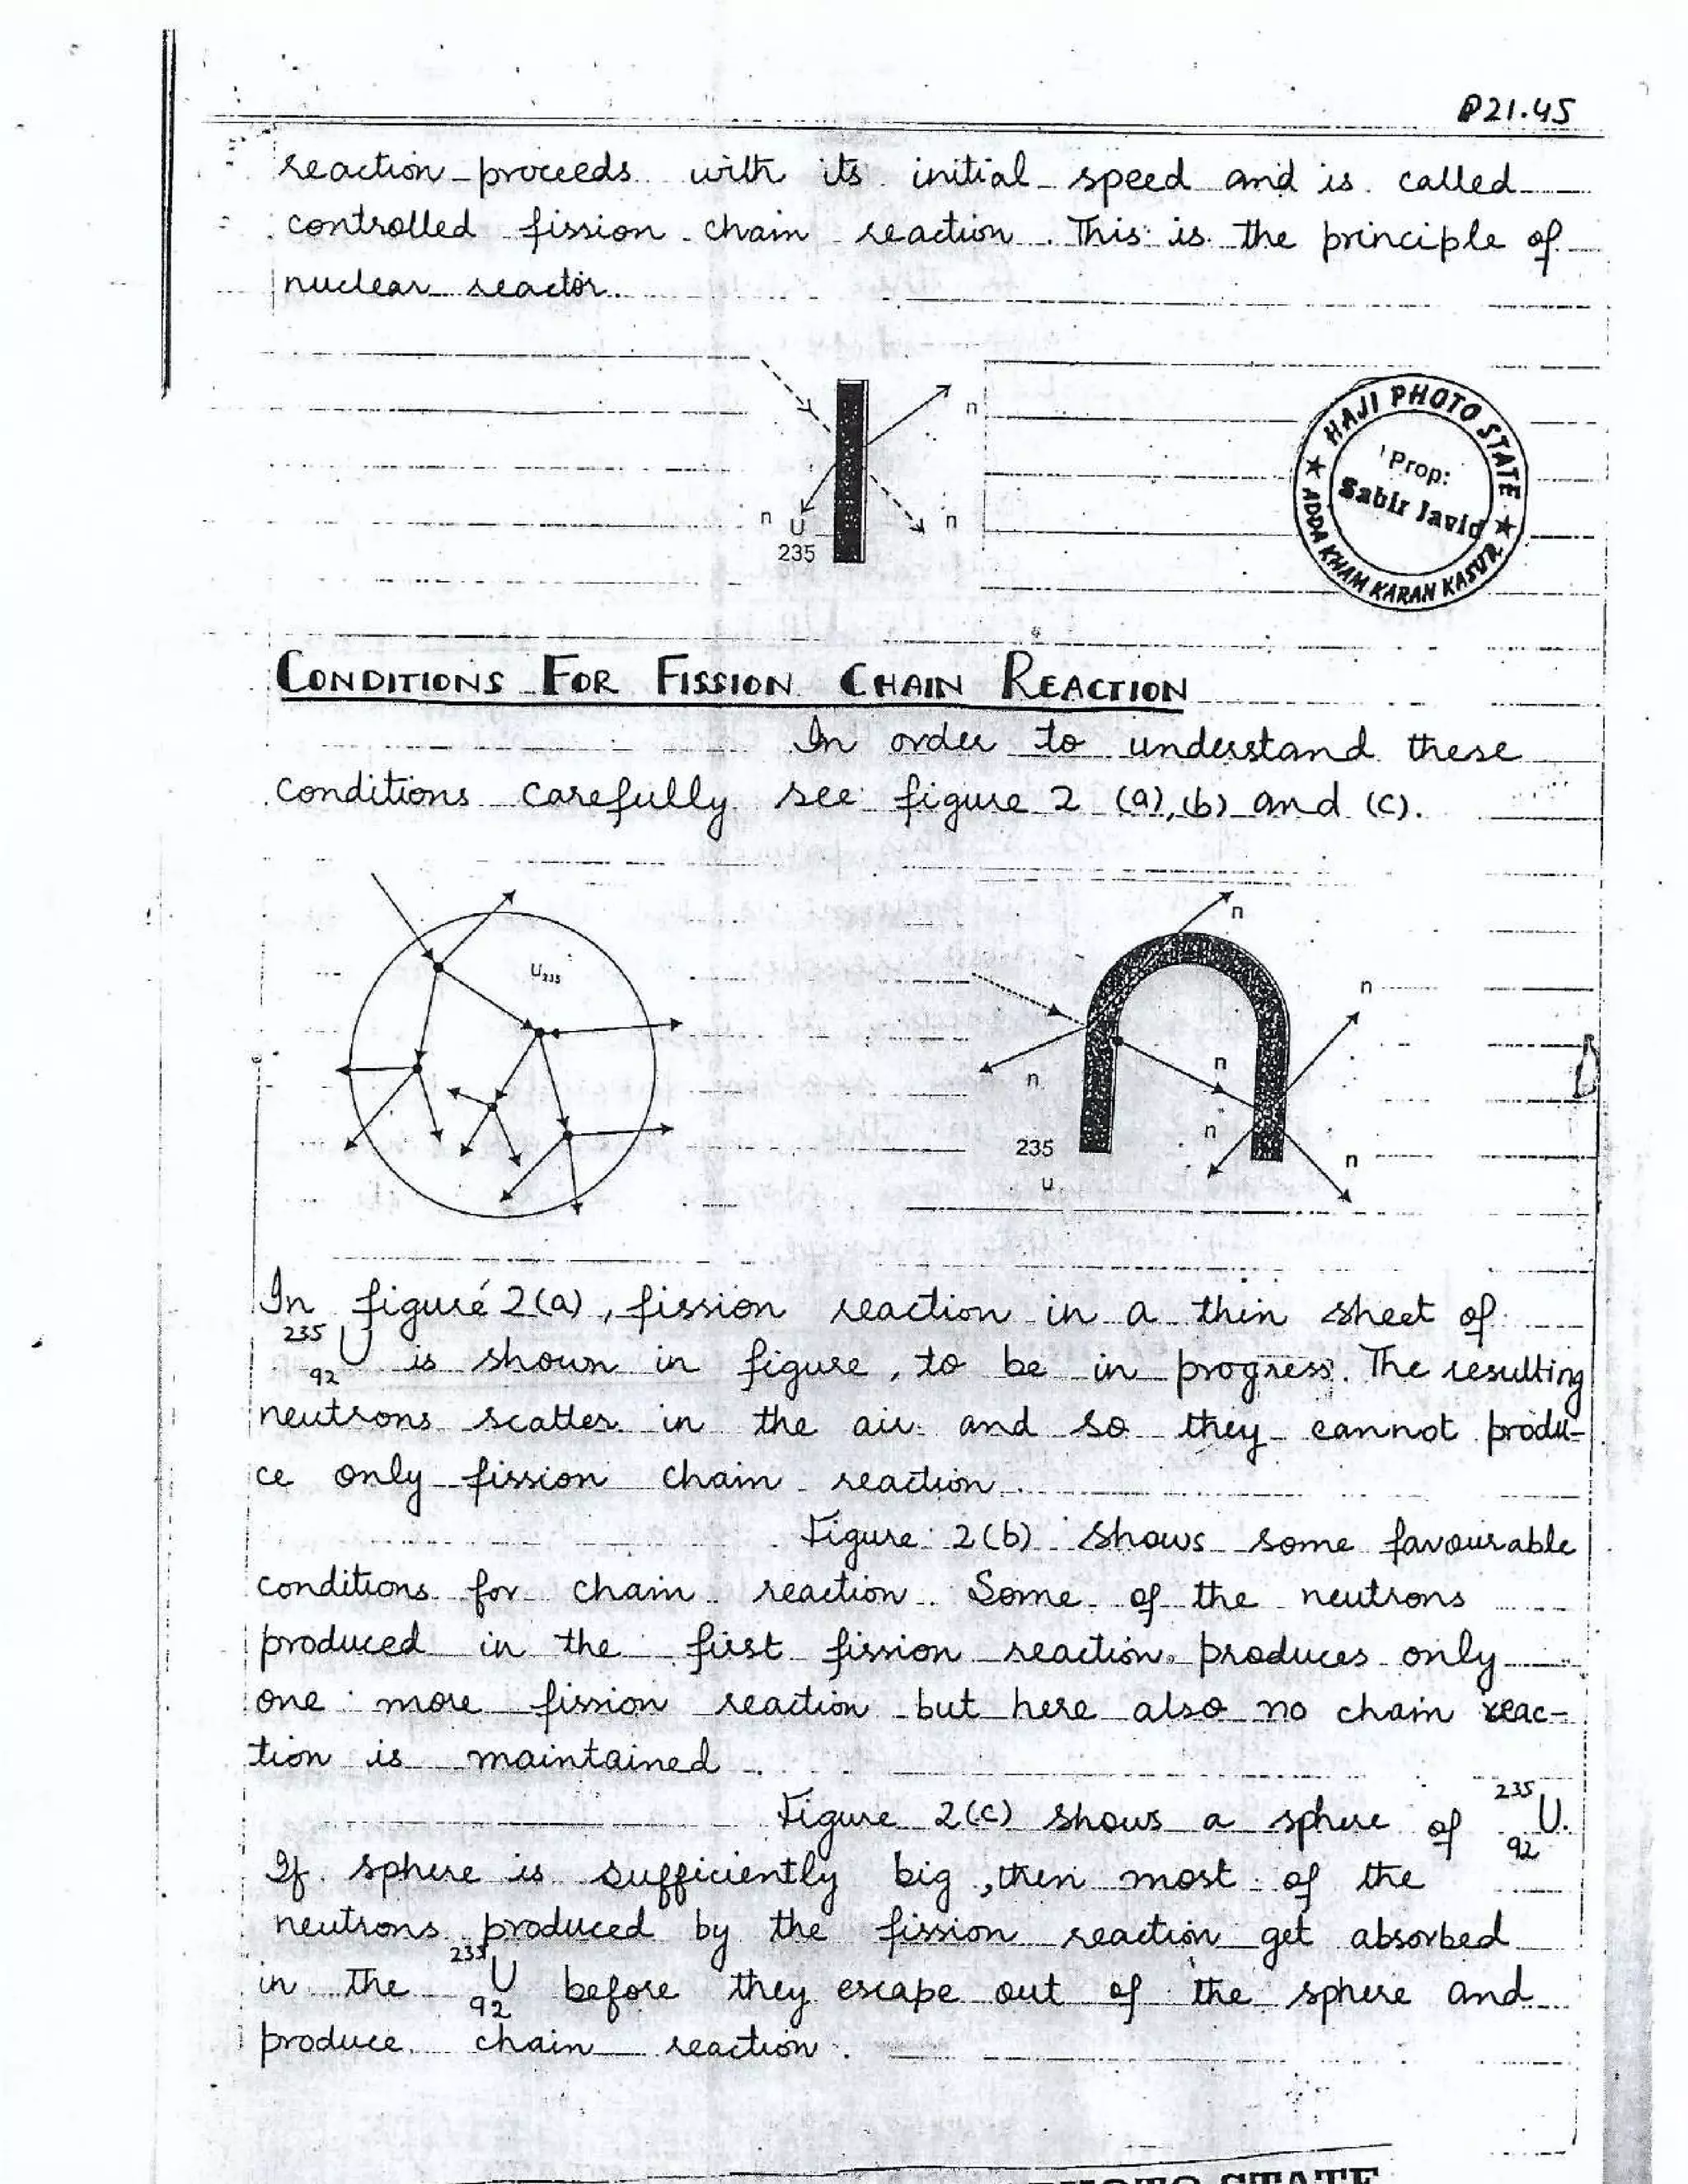 P21.45
reaction proceeds with its initial speed and is called
controlled fission chain reaction. This is the principle of
nuclear reactor.
n
n U n
235
HAJI PHOTO STATE
Prop:
Sabir Javid
ADDA KHAM KARAN KASUR
CONDITIONS FOR FISSION CHAIN REACTION
In order to understand these
conditions carefully see figure 2 (a),(b) and (c).
n
U235
n
n
n
n
235
n
U
In figure 2(a), fission reaction in a thin sheet of
235
U is shown in figure, to be in progress. The resulting
92
neutrons scatter in the air and so they cannot produ-
ce only fission chain reaction.
Figure 2(b) shows some favourable
conditions for chain reaction. Some of the neutrons
produced in the first fission reaction produces only
one more fission reaction but here also no chain reac-
tion is maintained.
Figure 2(c) shows a sphere of 235 U.
92
If sphere is sufficiently big, then most of the
neutrons produced by the fission reaction get absorbed
235
in the U before they escape out of the sphere and
92
produce chain reaction.
PHOTO STATE